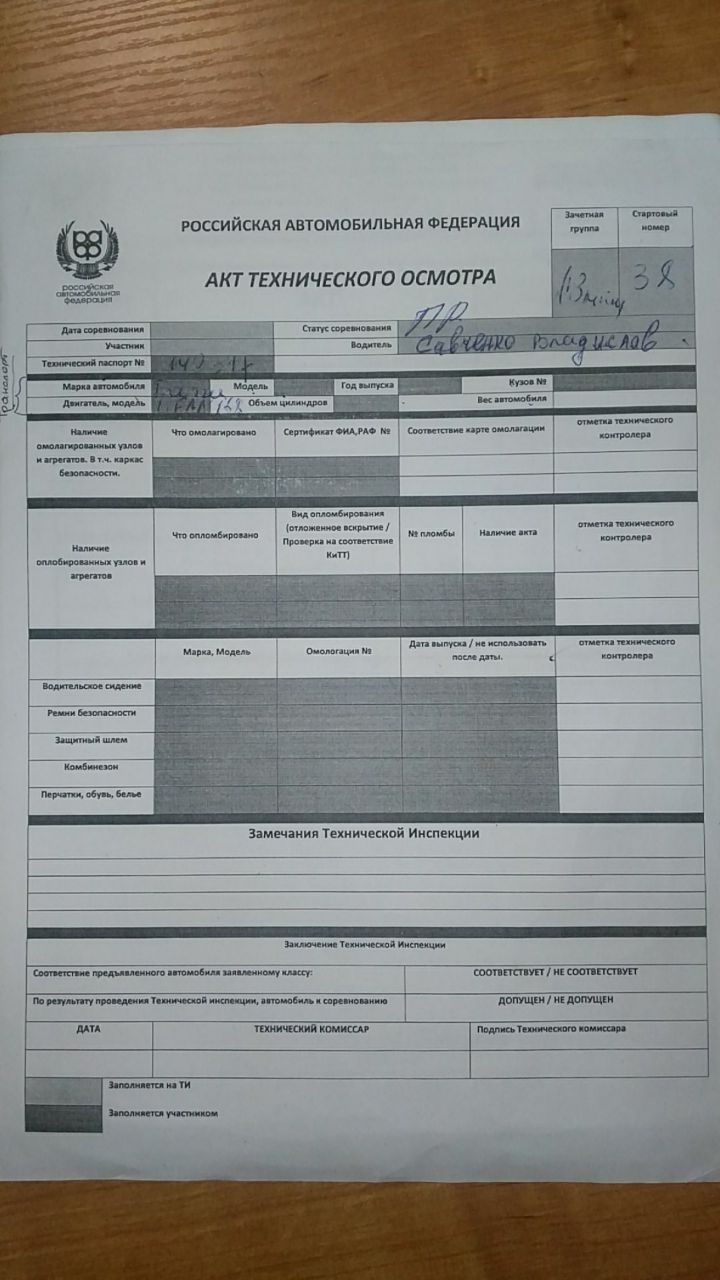 РОССИЙСКАЯ АВТОМОБИЛЬНАЯ ФЕДЕРАЦИЯ
Зачетная группа
Стартовый номер
российская
автомобильная
федерация
АКТ ТЕХНИЧЕСКОГО ОСМОТРА
38
Дата соревнования Статус соревнования ПР
Участник Водитель Савченко Владислав
Технический паспорт №
Транспорт
Марка автомобиля Модель Год выпуска Кузов №
Двигатель, модель Объем цилиндров Вес автомобиля
Наличие омолагированных узлов и агрегатов. В т.ч. каркас безопасности.
Что омолагировано
Сертификат ФИА,РАФ №
Соответствие карте омолагации
отметка технического контролера
Наличие оплобированных узлов и агрегатов
Что опломбировано
Вид опломбирования (отложенное вскрытие / Проверка на соответствие КиТТ)
№ пломбы
Наличие акта
отметка технического контролера
Марка, Модель
Омологация №
Дата выпуска / не использовать после даты.
отметка технического контролера
Водительское сидение
Ремни безопасности
Защитный шлем
Комбинезон
Перчатки, обувь, белье
Замечания Технической Инспекции
Заключение Технической Инспекции
Соответствие предъявленного автомобиля заявленному классу: СООТВЕТСТВУЕТ / НЕ СООТВЕТСТВУЕТ
По результату проведения Технической инспекции, автомобиль к соревнованию ДОПУЩЕН / НЕ ДОПУЩЕН
ДАТА ТЕХНИЧЕСКИЙ КОМИССАР Подпись Технического комиссара
Заполняется на ТИ
Заполняется участником